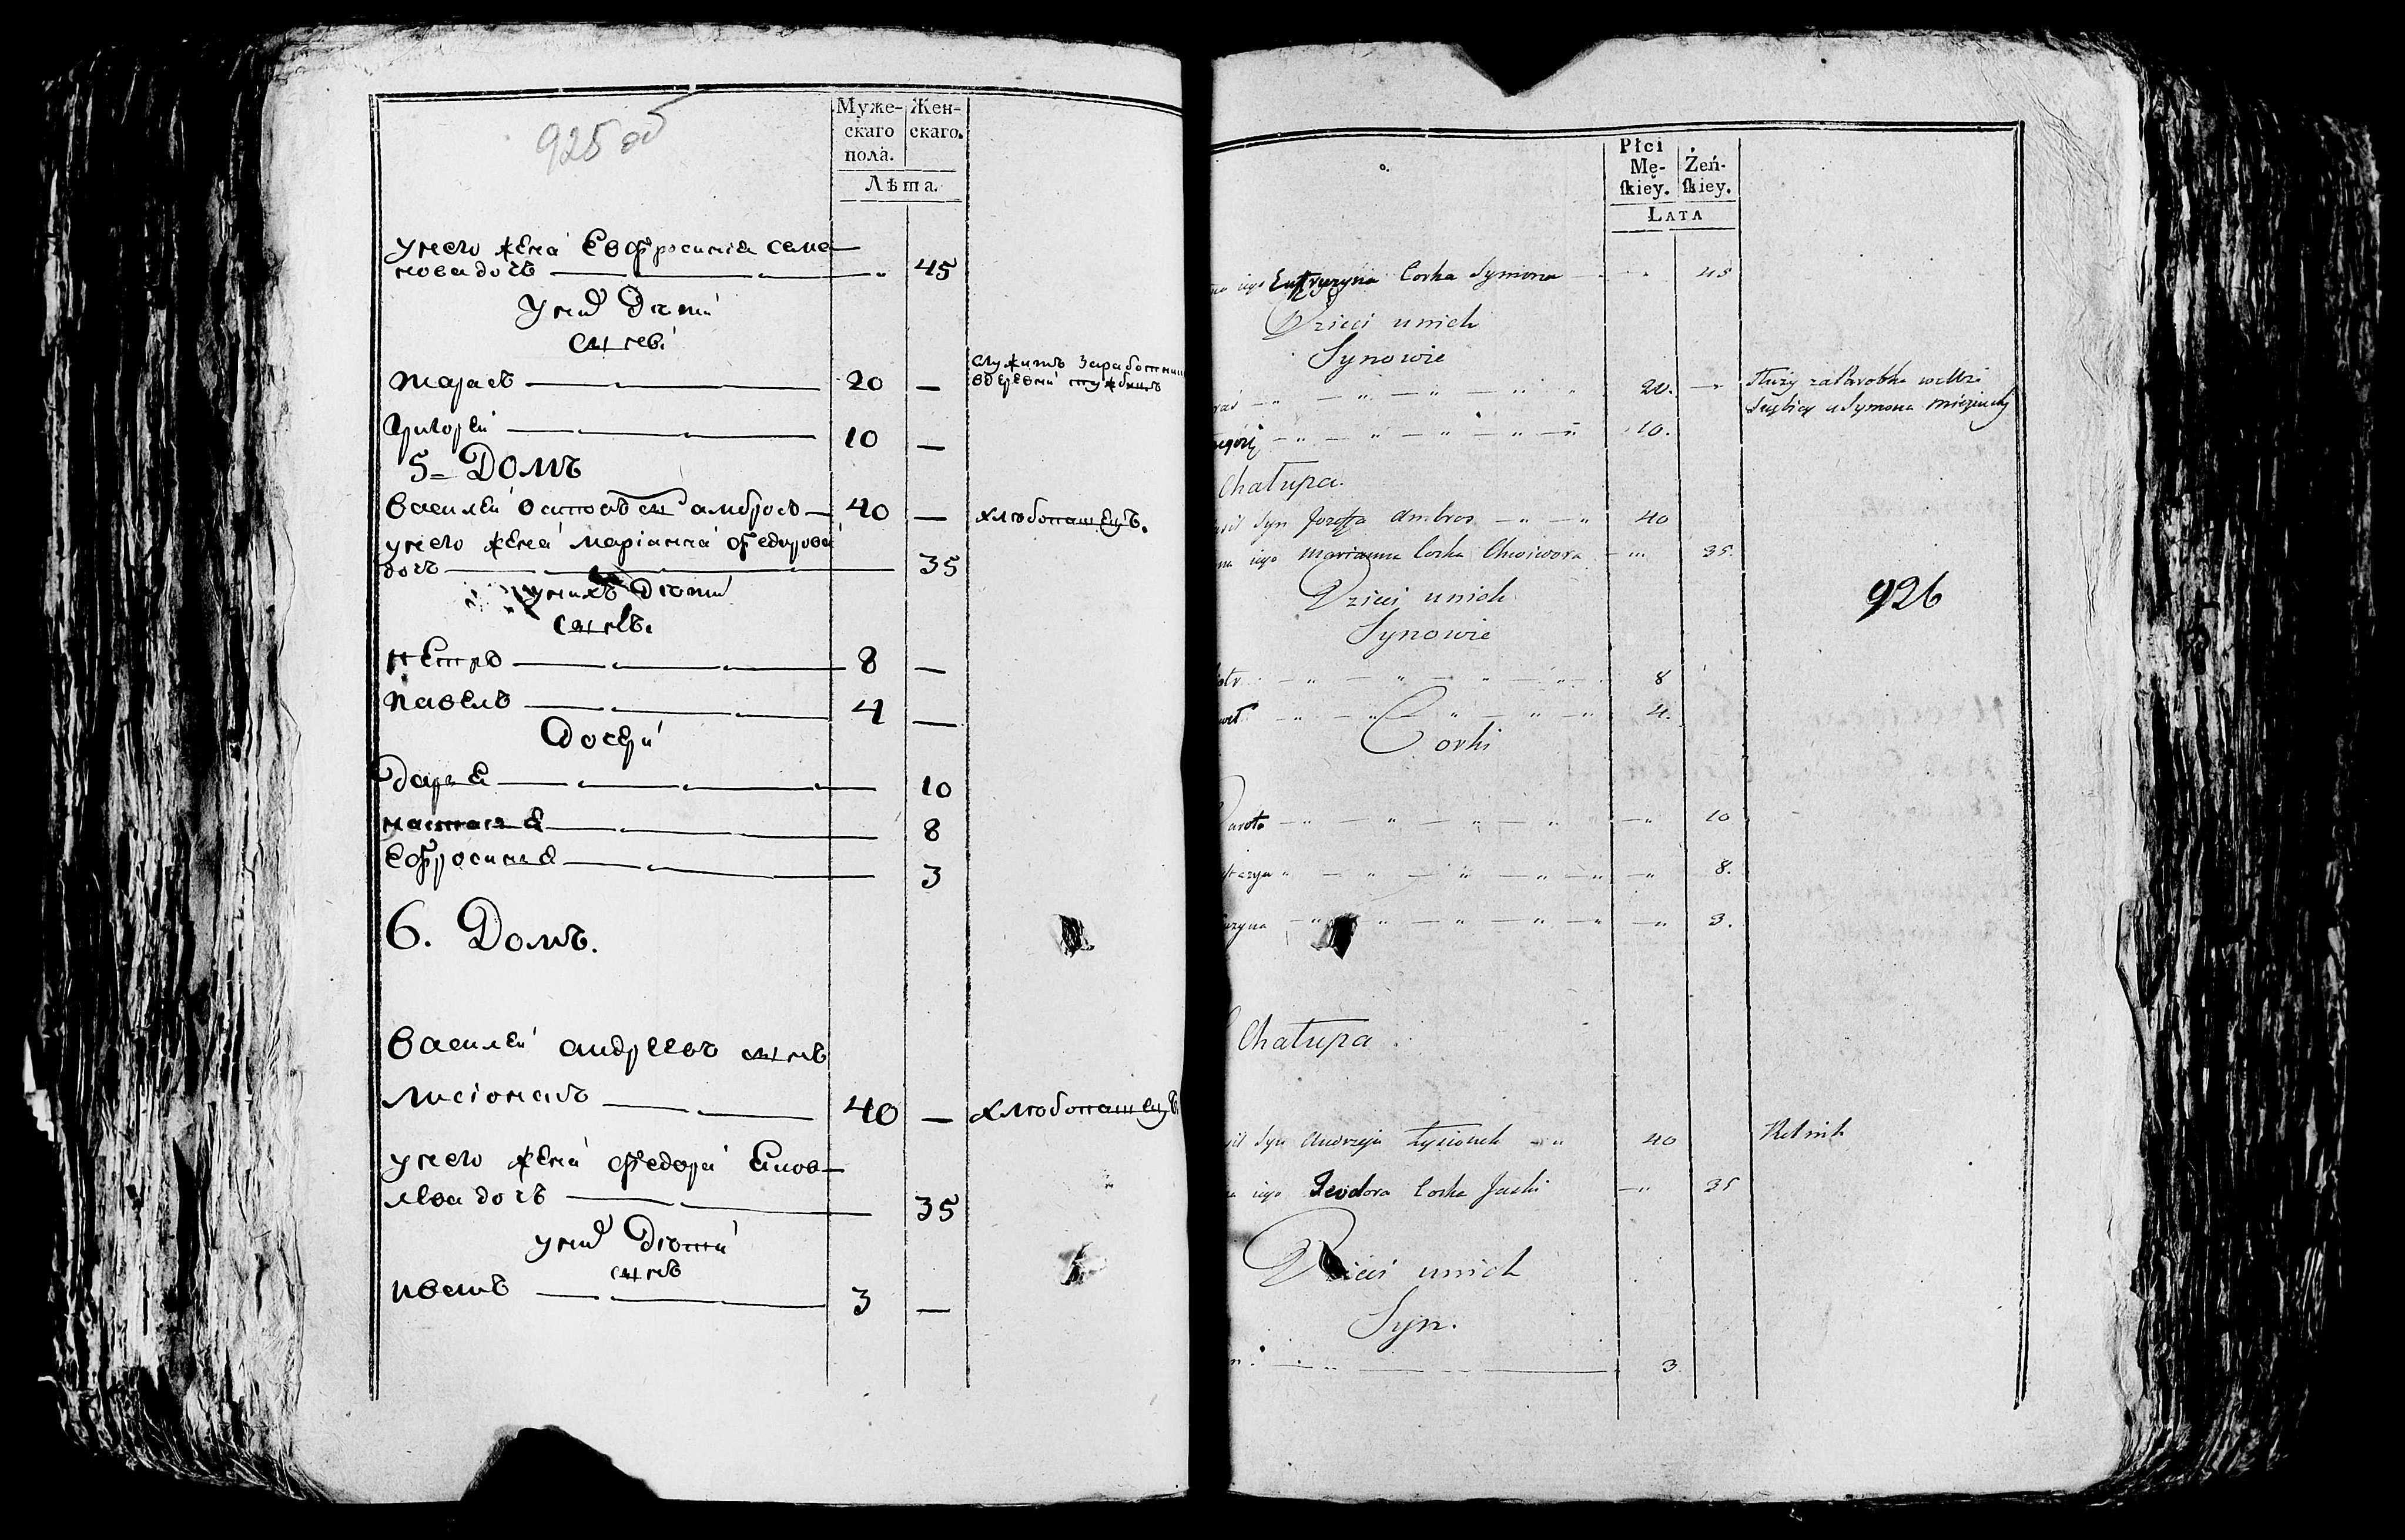 925 об
Муже-
скаго
пола.
Жен-
скаго.
Лѣта
унего жена Евфросиніа семе
нова дочь 45
Униⷯ дѣти
сынеы
тарасъ 20 —
служитъ
вдеревни
Григорей 10 —
5 = Домъ
василей сын амброс 40 — хлѣбопашецъ.
унего жена маріанна федорова
дочь 35
унихъ дѣти
сынеы.
петръ 8 —
павелъ 4 —
Дочери
дарья 10
настася 8
Ефросиня 3
6. Домъ.
василей андреевъ сынъ
лисіонакъ 40 — хлѣбопашецъ
унего жена федора Яков
лева дочь 35
униⷯ дѣти
сынъ
иванъ 3 —
Płci
Mę-
skiey.
Żeń-
skiey.
LATA
iego Eufruzyna Corka Symona 45
Dzieci unich
Synowie
20. Służy zaParobka wewsi
Służbicy uSymona
10.
Chałupa.
Syn Jozefa Ambros 40
iego Marianna Corka Chwiwora 35.
926
Dzieci unich
Synowie
8
4.
Corki
Darota 10
8.
3.
Chałupa
Syn Andrzeja Łysionek 40 Rolnik
iego Teodora Corka Jaski 35
Dzieci unich
Syn.
3